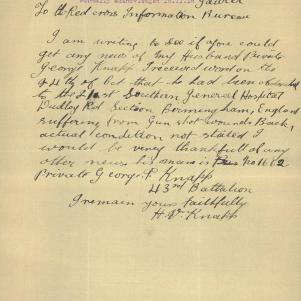 Gawler
To the Red cross Information Bureau
I am writing to see if you could
get any news of my husband Private
George Knapp. I received word on the
24th of Oct that he had been admitted
to the 1st Southern General Hospital
Dudley Rd Section Birmingham, England
suffering from Gun shot wounds Back,
actual condition not stated I
would be very thankfull of any
other news his name is No 1602
Private George P Knapp
43rd Battalion
I remain yours faithfully
H Knapp